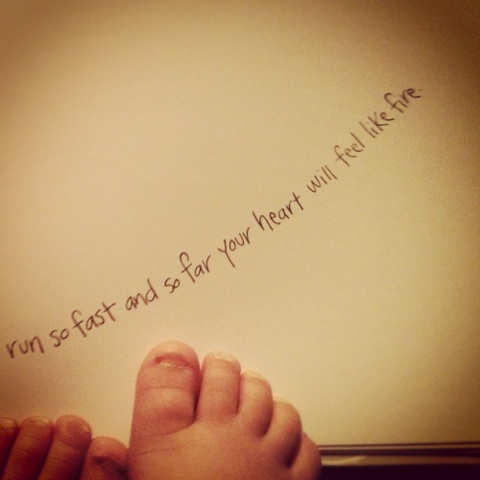 run so fast and so far your heart will feel like fire